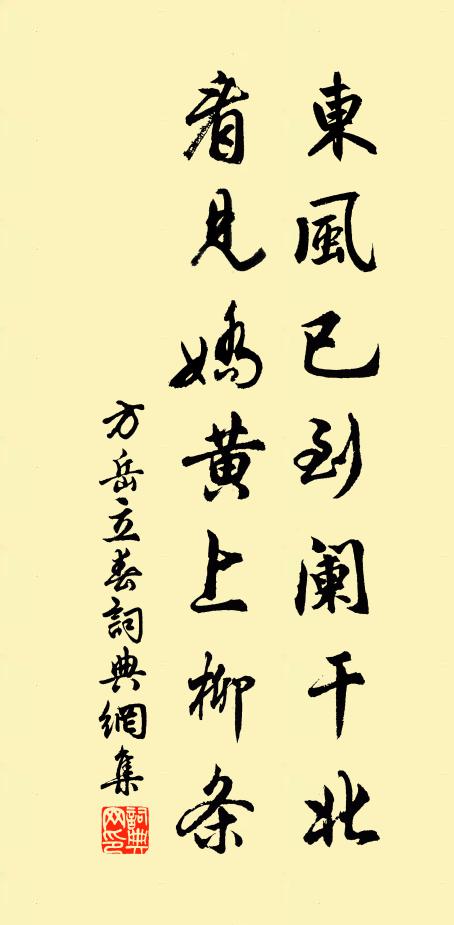 東風已到阑干北
看見嬌黄上柳条
方岳立春詞典網集
詞典
网印